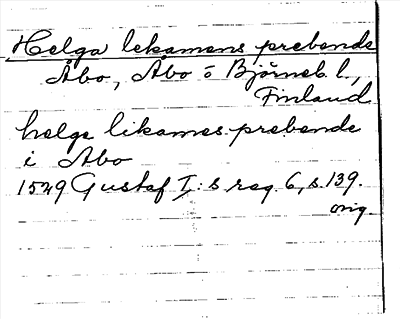 Helga lekamens prebende
Åbo, Åbo o Björneb. l.,
Finland
helge likames prebende
i Åbo
1529 Gustaf I:s reg. 6, s. 139.
orig.